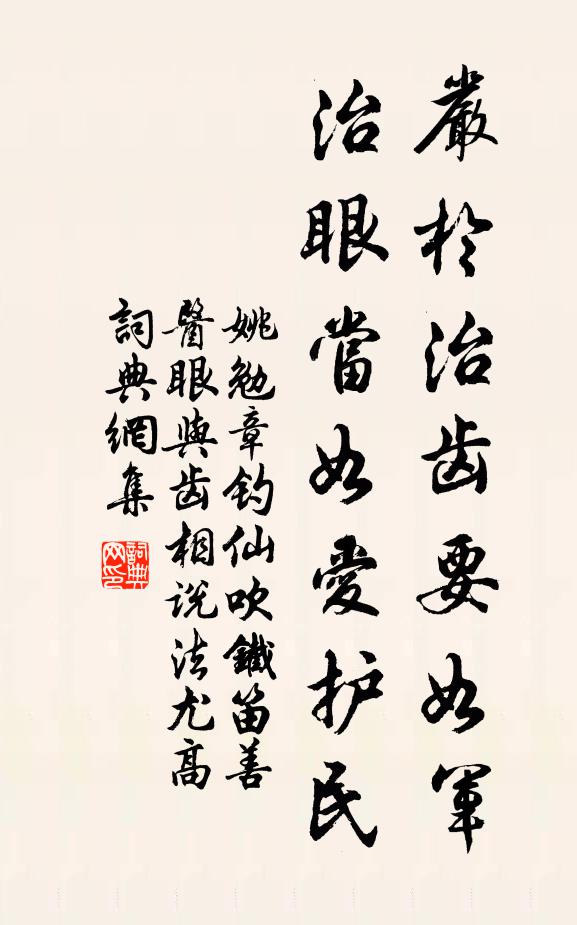 嚴於治齿要如軍
治眼當如愛护民
姚勉章釣仙吹鐵笛善
醫眼與齿相说法尤高
詞典網集
詞典网印